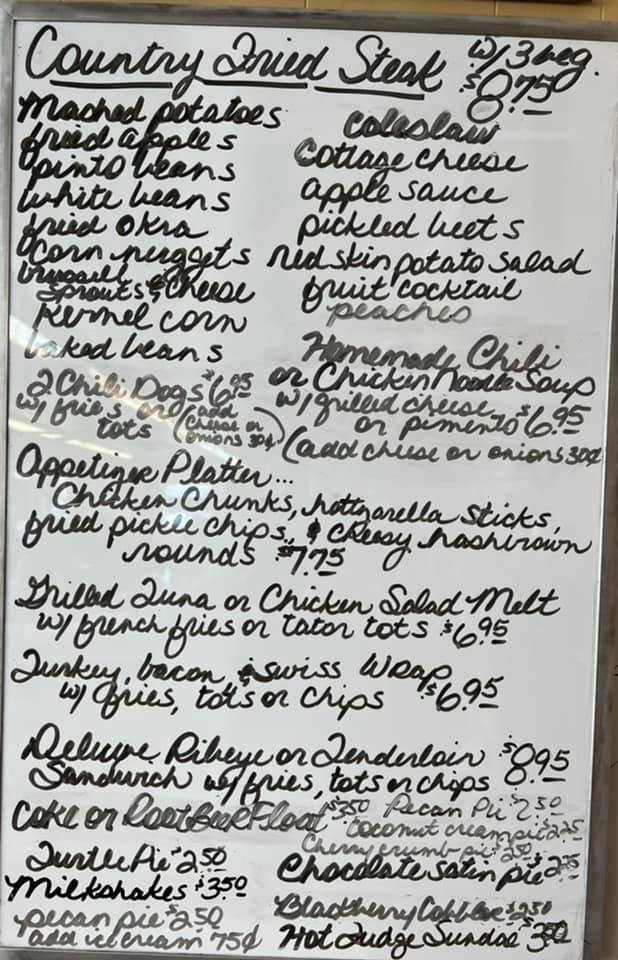 Country Fried Steak w/3 veg. $8.75
Mashed potatoes
fried apples
pinto beans
white beans
fried okra
corn nuggets
brussell
sprouts & cheese
Kernel corn
baked beans
coleslaw
cottage cheese
apple sauce
pickled beets
redskin potato salad
fruit cocktail
peaches
2 Chili Dogs $6.95
w/ fries or
tots
(add
cheese or
onions 30¢)
Homemade Chili
or Chicken Noodle Soup
w/ grilled cheese
or pimento $6.95
(add cheese or onions 30¢
Appetizer Platter...
Chicken Chunks, mozzarella sticks,
fried pickle chips, & cheesy hashbrown
rounds $7.75
Grilled Tuna or Chicken Salad Melt
w/ french fries or tator tots $6.95
Turkey, bacon, & swiss Wrap
w/ fries, tots or chips $6.95
Deluxe Ribeye or Tenderloin $8.95
Sandwich w/ fries, tots or chips
Coke or Root Beer Float $3.50
Pecan Pie 2.50
Coconut cream pie $2.25
Cherry crumb pie $2.50
Turtle Pie $2.50
Chocolate Satin pie
Milkshakes $3.50
Blackberry Cobbler $2.50
pecan pie $2.50
add ice cream 75¢
Hot Fudge Sundae $3.50